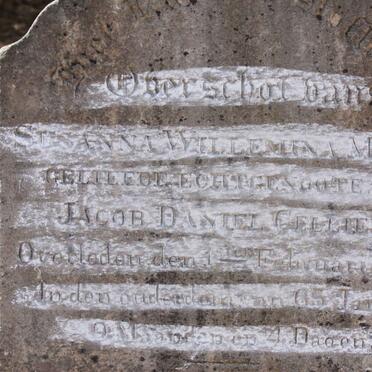 Overschot van
SUSANNA WILLEMINA M
GELIEFDE ECHTGENOOTE
JACOB DANIEL CELLIE
Overleden den 1 sten Februari
In den ouderdom van 65 Ja
9 Maanden en 4 Dagen